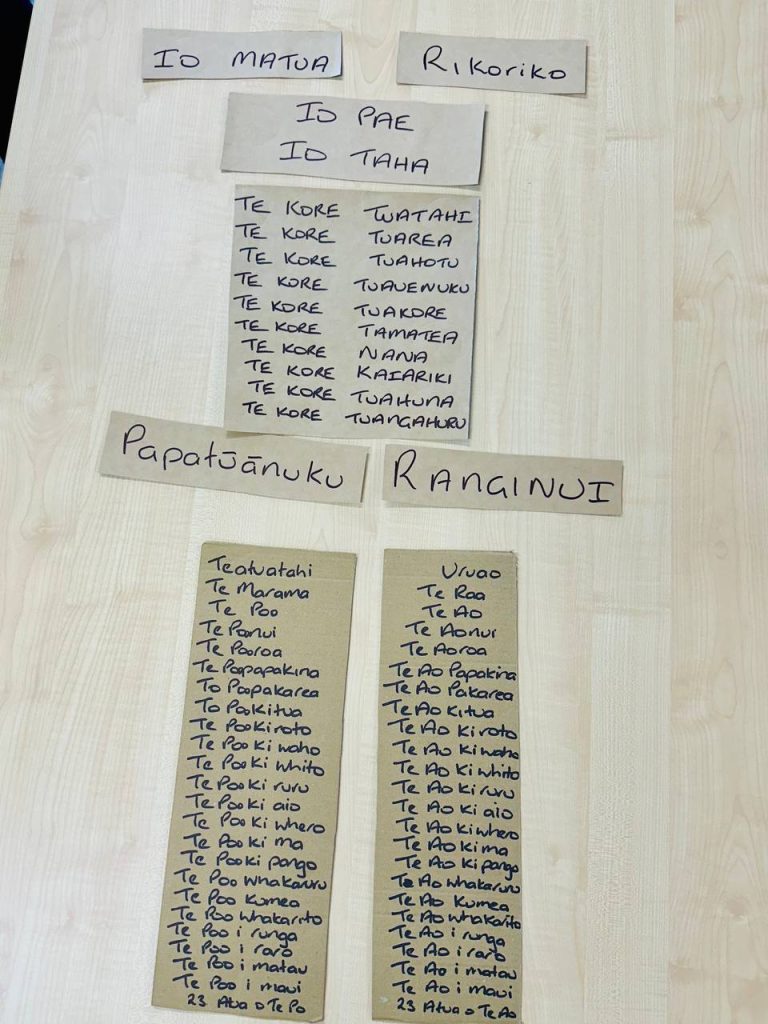 IO MATUA
Rikoriko
IO PAE
IO TAHA
TE KORE TUATAHI
TE KORE TUAREA
TE KORE TUAHOTU
TE KORE TUAUENUKU
TE KORE TUAKORE
TE KORE TAMATEA
TE KORE NANA
TE KORE KAIARIKI
TE KORE TUAHUNA
TE KORE TUANGAHURU
Papatūānuku
RANGINUI
Teatuatahi
Te Marama
Te Poo
Te Poonui
Te Pooroa
Te Poopapakina
To Poopakarea
To Pookitua
Te Pookiroto
Te Poo Ki waho
Te Poo Ki whito
Te Poo Ki ruru
Te Poo Ki aio
Te Poo Ki whero
Te Poo Ki ma
Te Poo Ki pango
Te Poo whakaruru
Te Poo Kumea
Te Poo whakarito
Te Poo i runga
Te Poo i raro
Te Poo i matau
Te Poo i maui
23 Atua o Te Po
Uruao
Te Raa
Te Ao
Te Aonui
Te Aoroa
Te Ao Papakina
Te Ao Pakarea
Te Ao Kitua
Te Ao Kiroto
Te Ao Ki waho
Te Ao Ki whito
Te Ao Ki ruru
Te Ao Ki aio
Te Ao Ki whero
Te Ao Ki ma
Te Ao Ki pango
Te Ao whakaruru
Te Ao Kumea
Te Ao whakarito
Te Ao i runga
Te Ao i raro
Te Ao i matau
Te Ao i maui
23 Atua o Te Ao